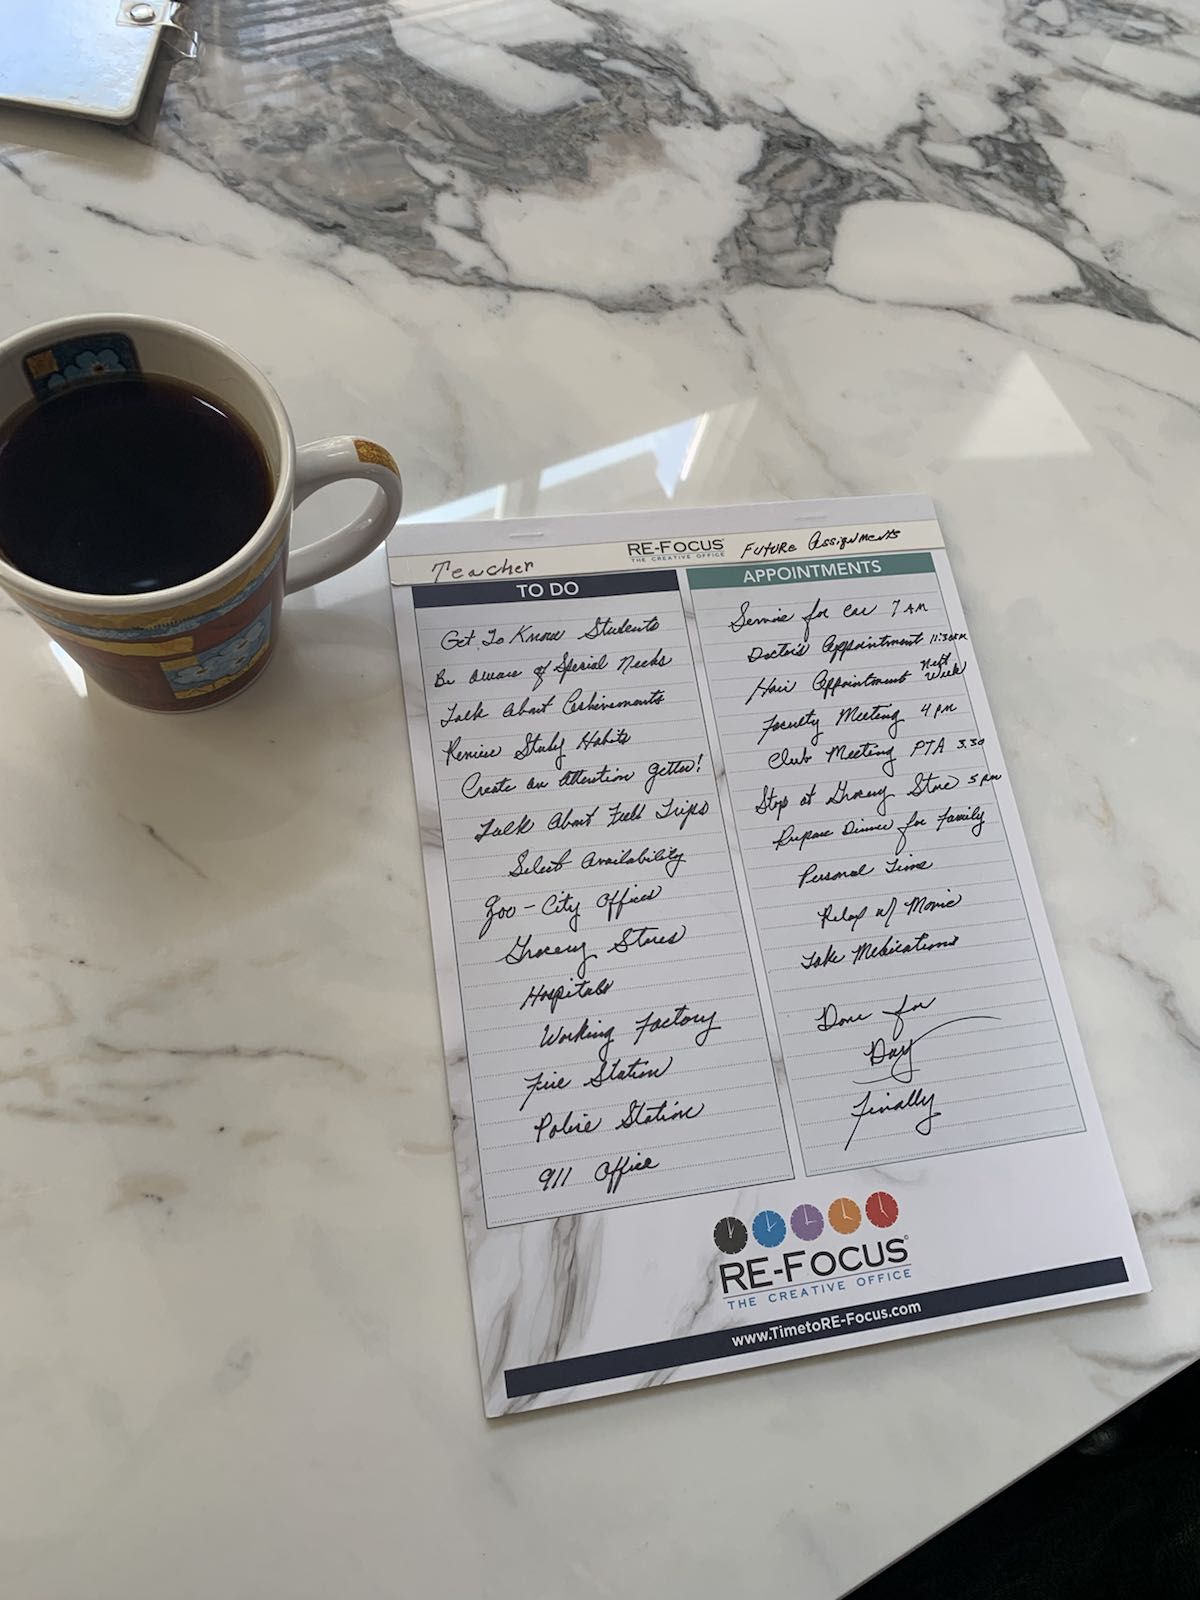 Teacher
RE-FOCUS
THE CREATIVE OFFICE
Future Assignments
TO DO
Get To Know Students
Be aware of Special Needs
Talk About Achievements
Review Study Habits
Create an attention getter!
Talk About Field Trips
Select Availability
Zoo - City Offices
Grocery Stores
Hospitals
Working Factory
Fire Station
Police Station
911 Office
APPOINTMENTS
Service for Car 7 AM
Doctor's Appointment 11:30AM
Hair Appointment Next Week
Faculty Meeting 4 PM
Club Meeting PTA 3:30
Stop at Grocery Store 5 pm
Prepare Dinner for Family
Personal Time
Relax w/ Movie
Take Medications
Done for
Day
Finally
RE-FOCUS
THE CREATIVE OFFICE
www.TimetoRE-Focus.com